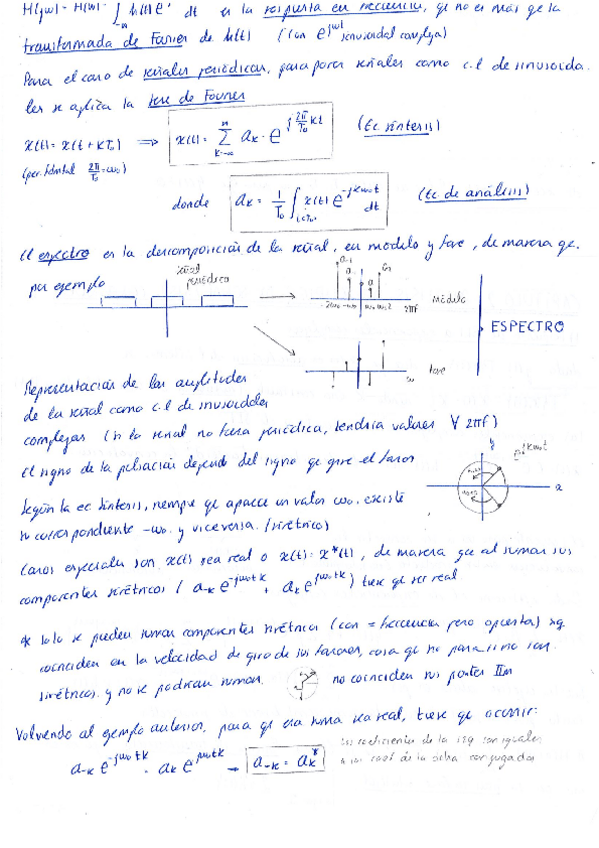 H(jω) = H(ω) = ∫ h(t) e dt es la respuesta en frecuencia, qe no es más qe la
transformada de Fourier de h(t) (con e^jωt sinusoidal compleja)
Para el caso de señales periódicas, para poner señales como c.l de sinusoida
les se aplica la serie de Fourier
x(t) = x(t + KT₀) ⟹ x(t) = Σ_{k=-∞}^{∞} a_k · e^{j 2π/T₀ kt} (Ec. síntesis)
2π/T₀ = ω₀)
donde a_k = 1/T₀ ∫ x(t) e^{-jkω₀t} dt (Ec de análisis)
El espectro es la descomposición de la señal, en módulo y fase, de manera qe.
por ejemplo señal
periódica
-ω₀ 2πf módulo
ESPECTRO
ω fase
Representación de las amplitudes
de la señal como c.l de sinusoides
complejas (si la señal no fuera periódica, tendría valores ∀ 2πf)
El signo de la pulsación depende del signo qe gire el fasor
Según la ec síntesis, siempre qe aparece un valor ω₀. existe
su correspondiente -ω₀. y viceversa. (simétrico)
Casos especiales son x(t) sea real o x(t) = x*(t), de manera qe al sumar sus
componentes simétricos ( a_-k e^{-jω₀tk} + a_k e^{jω₀tk} ) tiene qe ser real
* solo se pueden sumar componentes simétricos (con = frecuencia pero opuesta) xq.
coinciden en la velocidad de giro de sus fasores, cosa qe no pasa si no son
simétricos. y no se podrían sumar. no coinciden sus partes IIm
Volviendo al ejemplo anterior, para qe esa suma sea real, tiene qe ocurrir:
a_-k e^{-jω₀tk} · a_k e^{jω₀tk} → a_-k = a_k* los coeficientes de la izq son iguales
a los coef de la dcha conjugados